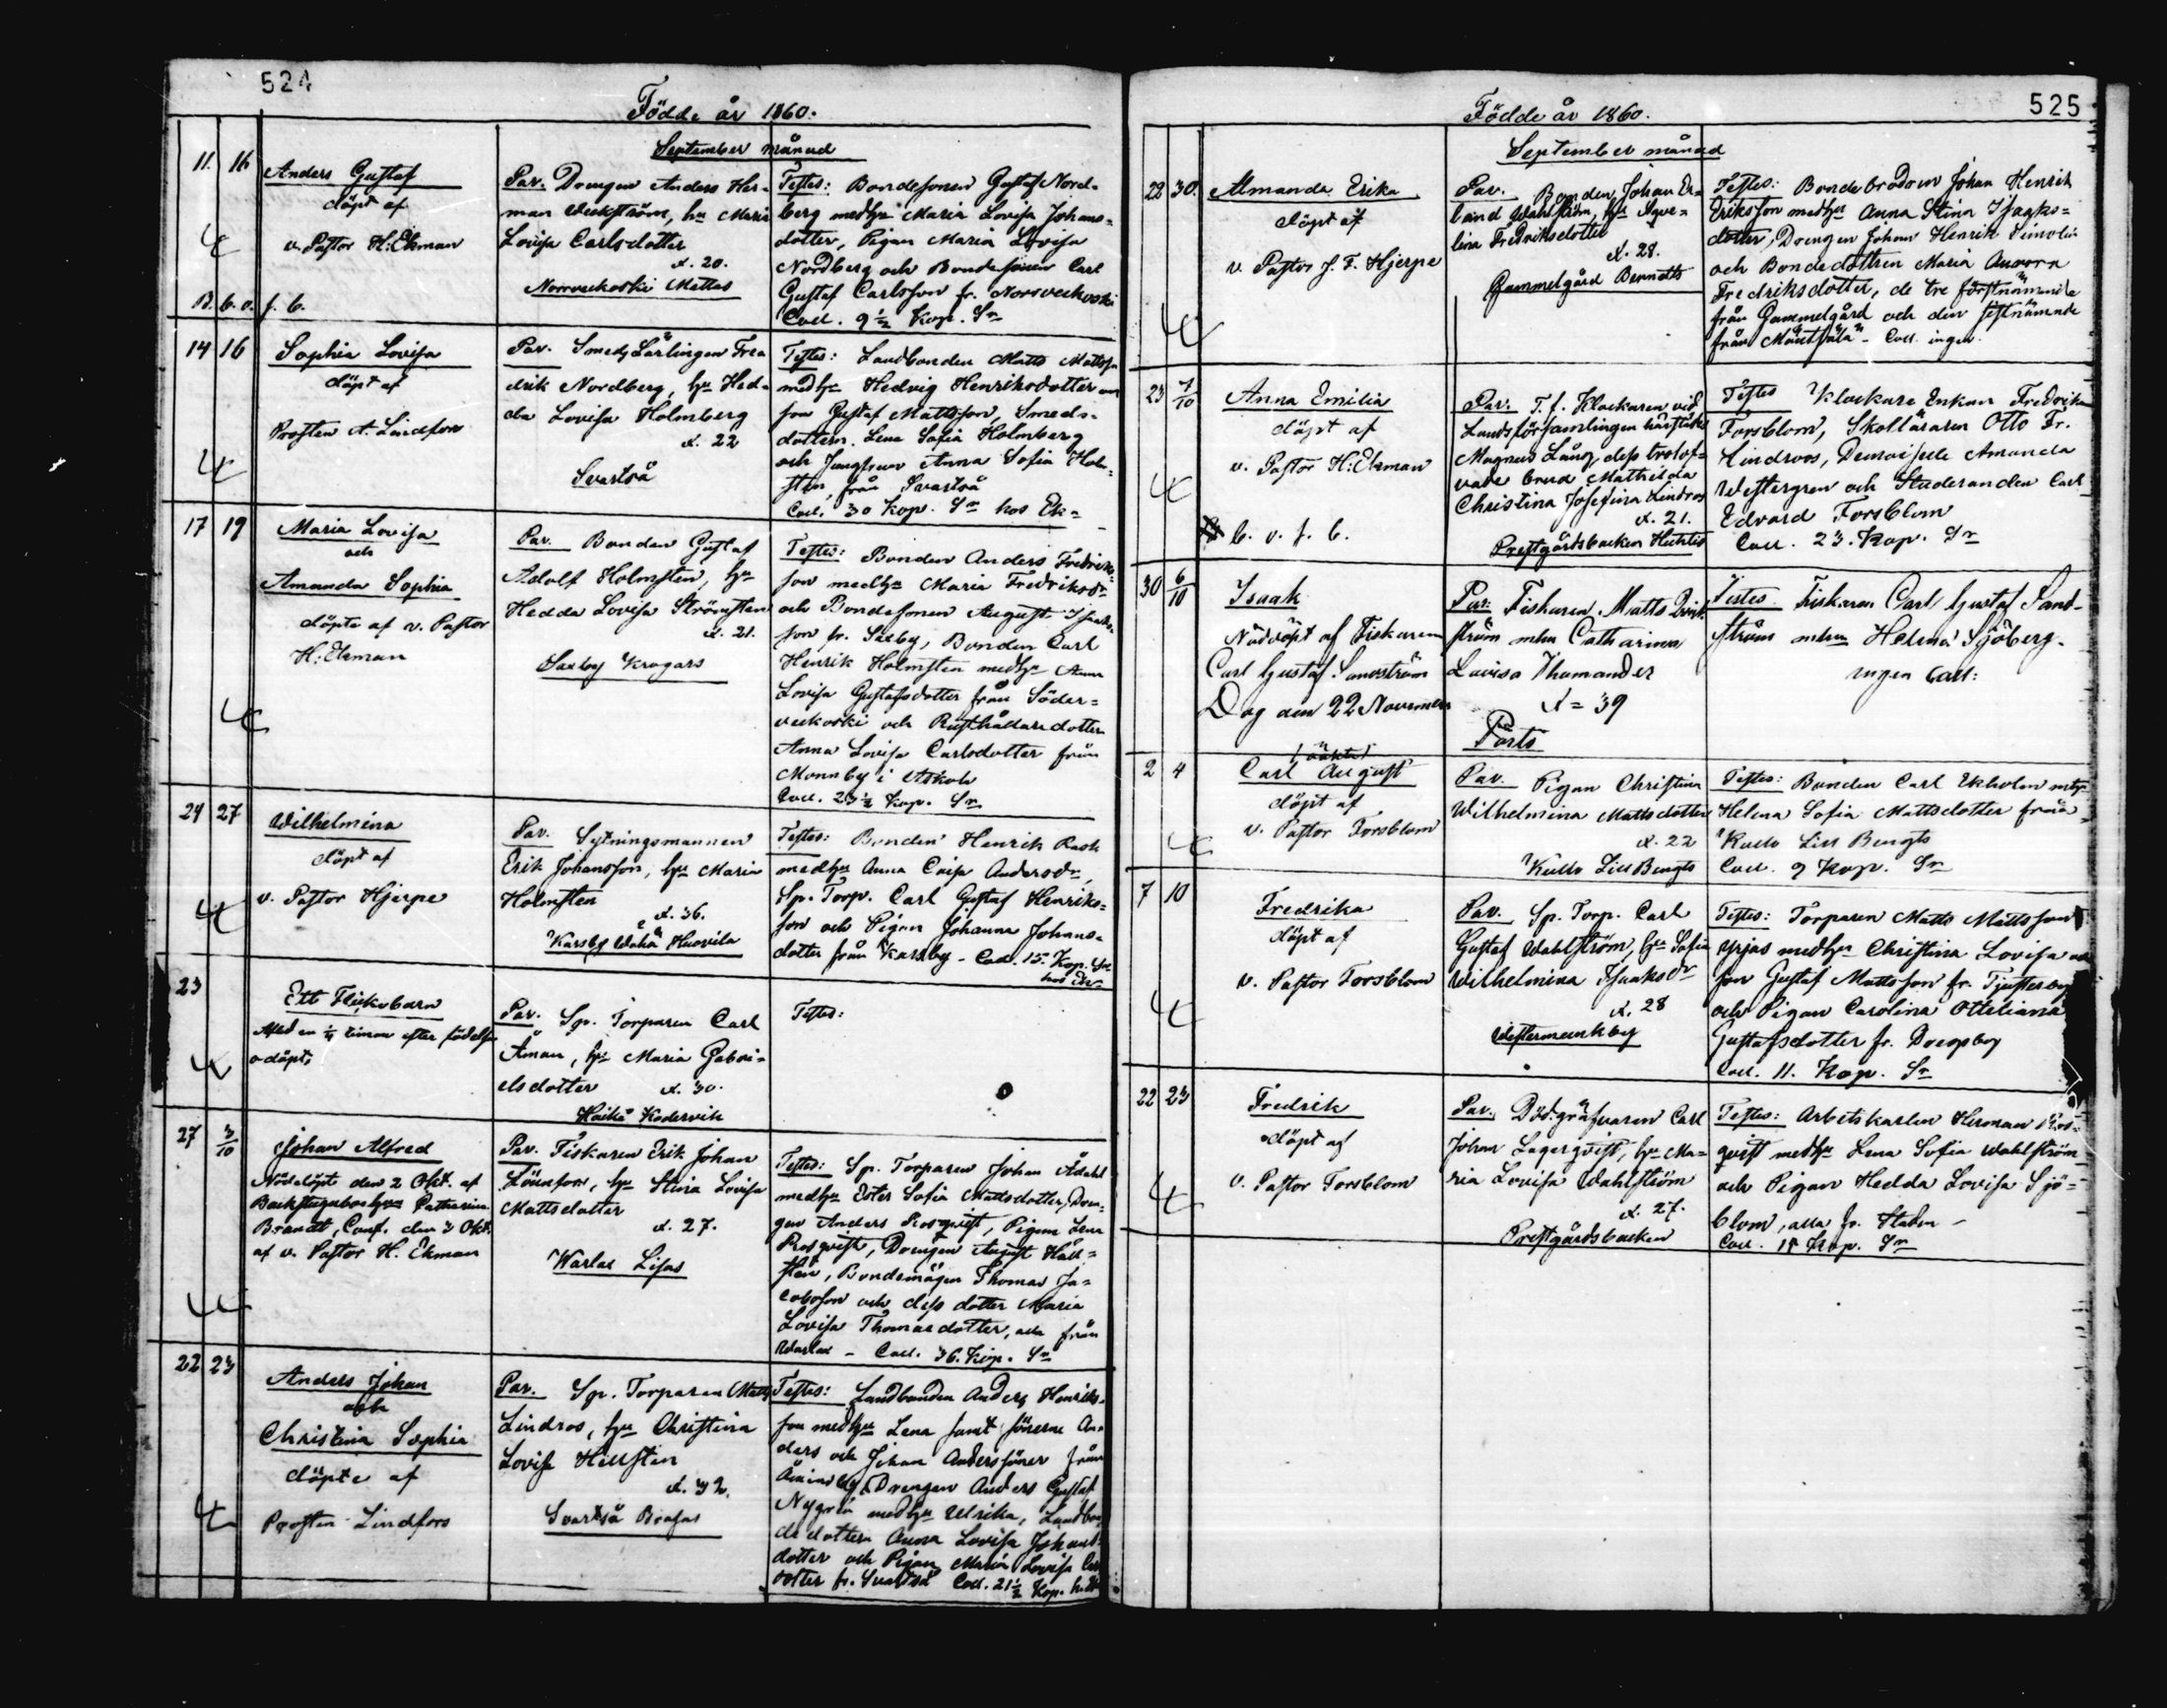 524
Födde år 1860.
September månad
11. 16
Anders Gustaf
döpt af
v. Pastor H: Ekman
B. b. o. f. b.
Par. Drengen Anders Her-
man Weckström, hu Maria
Lovisa Carlsdotter
d. 20.
Norrveckoski Mattas
Testes: Bondesonen Gustaf Nord-
berg med hu Maria Lovisa Johans-
dotter, Pigan Maria Lovisa
Nordberg och Bondesonen Carl
Gustaf Carlsson fr. Norrveckoski
Coll. 9 1/2 Kop. Sr
14 16
Sophia Lovisa
döpt af
Prosten A. Lindfors
Par. Smeds Lärlingen Fre
drik Nordberg, hu Hed-
da Lovisa Holmberg
d. 22
Svartså
Testes: Landbonden Matts Mattss
med hu Hedvig Henriksdotter
son Gustaf Mattsson, Smeds-
dottern Lena Sofia Holmberg
och Jungfrun Anna Sofia Holm-
sten, från Svartså
Coll. 30 Kop. Sr hos Ek-
17 19
Maria Lovisa
och
Amanda Sophia
döpte af v. Pastor
H: Ekman
Par. Bonden Gustaf
Adolf Holmsten, hu
Hedda Lovisa Strömsten
d. 21.
Saxby Krogars
Testes: Bonden Anders Fredriks-
son med hu Maria Fredriksdr
och Bondesonen August Isaks-
son fr. Saxby, Bonden Carl
Henrik Holmsten med hu Anna
Lovisa Gustafsdotter från Söder-
veckoski och Rusthållaredottern
Anna Lovisa Carlsdotter från
Monnby i Askola
Coll. 23 1/2 Kop. Sr
24 27
Wilhelmina
döpt af
v. Pastor Hjerpe
Par. Sytningsmannen
Erik Johansson, hu Maria
Holmsten
d. 36.
Karsby Wähä Huovila
Testes: Bonden Henrik Rask
med hu Anna Caisa Andersdr,
Sp. Torp. Carl Gustaf Henriks-
son och Pigan Johanna Johans-
dotter från Karsby - Coll. 15. Kop. Sr
hos Ekn
23
Ett Flickobarn
Afled en 1/2 timme efter födelsen
odöpt.
Par. Sp. Torparen Carl
Åman, hu Maria Gabri-
elsdotter d. 30.
Haikå Kodervik
Testes:
27 3/10
Johan Alfred
Nöddöpt den 2 Okt. af
Backstugubos hu Catharina
Brandt, Conf. den 3 Okt.
af v. Pastor H. Ekman
Par. Fiskaren Erik Johan
Lönnfors, hu Stina Lovisa
Mattsdotter
d. 27.
Warlax Lisas
Testes: Sp. Torparen Johan Ådahl
med hu Ester Sofia Mattsdotter, Dren-
gen Anders Rosqvist, Pigan Lena
Rosqvist, Drengen August Häll-
sten, Bondemågen Thomas Ja-
cobsson och dess dotter Maria
Lovisa Thomasdotter, alla från
Warlax - Coll. 36. Kop. Sr
22 23
Anders Johan
och
Christina Sophia
döpte af
Prosten Lindfors
Par. Sp. Torparen Matts
Lindros, hu Christina
Lovisa Hellsten
d. 32.
Svartså Brasas
Testes: Landbonden Anders Henriks-
son med hu Lena samt sönerne An-
ders och Johan Anderssöner från
Drengen Anders Gustaf
Nygrén med hu Ulrika, Landbon-
dedottern Anna Lovisa Johans-
dotter och Pigan Maria Lovisa Carls
dotter fr. Svartså Coll. 21 1/2 Kop.
525
Födde år 1860.
September månad
22 30.
Amanda Erika
döpt af
v. Pastor J. F. Hjerpe
Par. Bonden Johan Er-
land Wahlström, hu Ave-
lina Fredriksdotter
d. 28.
Gammelgård Berndts
Testes: Bondebrodren Johan Henrik
Eriksson med hu Anna Stina Isaaks-
dotter, Drengen Johan Henrik Simolin
och Bondedottren Maria Aurora
Fredriksdotter, de tre förstnämnde
från Gammelgård och den sistnämnde
från Mäntsälä - Coll. ingen.
23 1/10
Anna Emilia
döpt af
v. Pastor H: Ekman
b. v. f. b.
Par. T. f. Klockaren vid
Landsförsamlingen härstädes
Magnus Lång, dess trolof-
vade brud Mathilda
Christina Josefina Lindros
d. 21.
Prestgårdsbacken Huktis
Testes Klockare Enkan Fredrika
Forsblom, Skolläraren Otto Fr.
Lindroos, Demoiselle Amanda
Westergren och Studeranden Carl
Edvard Forsblom
Coll. 23. Kop. Sr
30 6/10
Isaak
Nöddöpt af Fiskaren
Carl Gustaf Sandström
Dog den 22 November
Par: Fiskaren Matts Qvist
ström m hu Catharina
Lovisa Thomander
d = 39
Pörtö
Testes Fiskaren Carl Gustaf Sand-
ström m hu Helena Sjöberg.
ingen Coll:
2 4
(oäkta)
Carl August
döpt af
v. Pastor Forsblom
Par. Pigan Christina
Wilhelmina Mattsdotter
d. 22
Kullo Lill Bengts
Testes: Bonden Carl Ekholm m hu
Helena Sofia Mattsdotter från
Kullo Lill Bengts
Coll. 9 Kop. Sr
7 10
Fredrika
döpt af
v. Pastor Forsblom
Par. Sp. Torp. Carl
Gustaf Wahlström, hu Sofia
Wilhelmina Isaaksdr
d. 28
Westermunkby
Testes: Torparen Matts Mattsson
Yrjas med hu Christina Lovisa och
son Gustaf Mattsson fr. Tjusterby
och Pigan Carolina Otteliana
Gustafsdotter fr. Drägsby
Coll. 11. Kop. Sr
22 23
Fredrik
döpt af
v. Pastor Forsblom
Par. Dödgräfvaren Carl
Johan Lagerqvist, hu Ma-
ria Lovisa Wahlström
d. 27.
Prestgårdsbacken
Testes: Arbetskarlen Herman Ros-
qvist med hu Lena Sofia Wahlström
och Pigan Hedda Lovisa Sjö-
blom, alla fr. Staden -
Coll. 15 Kop. Sr